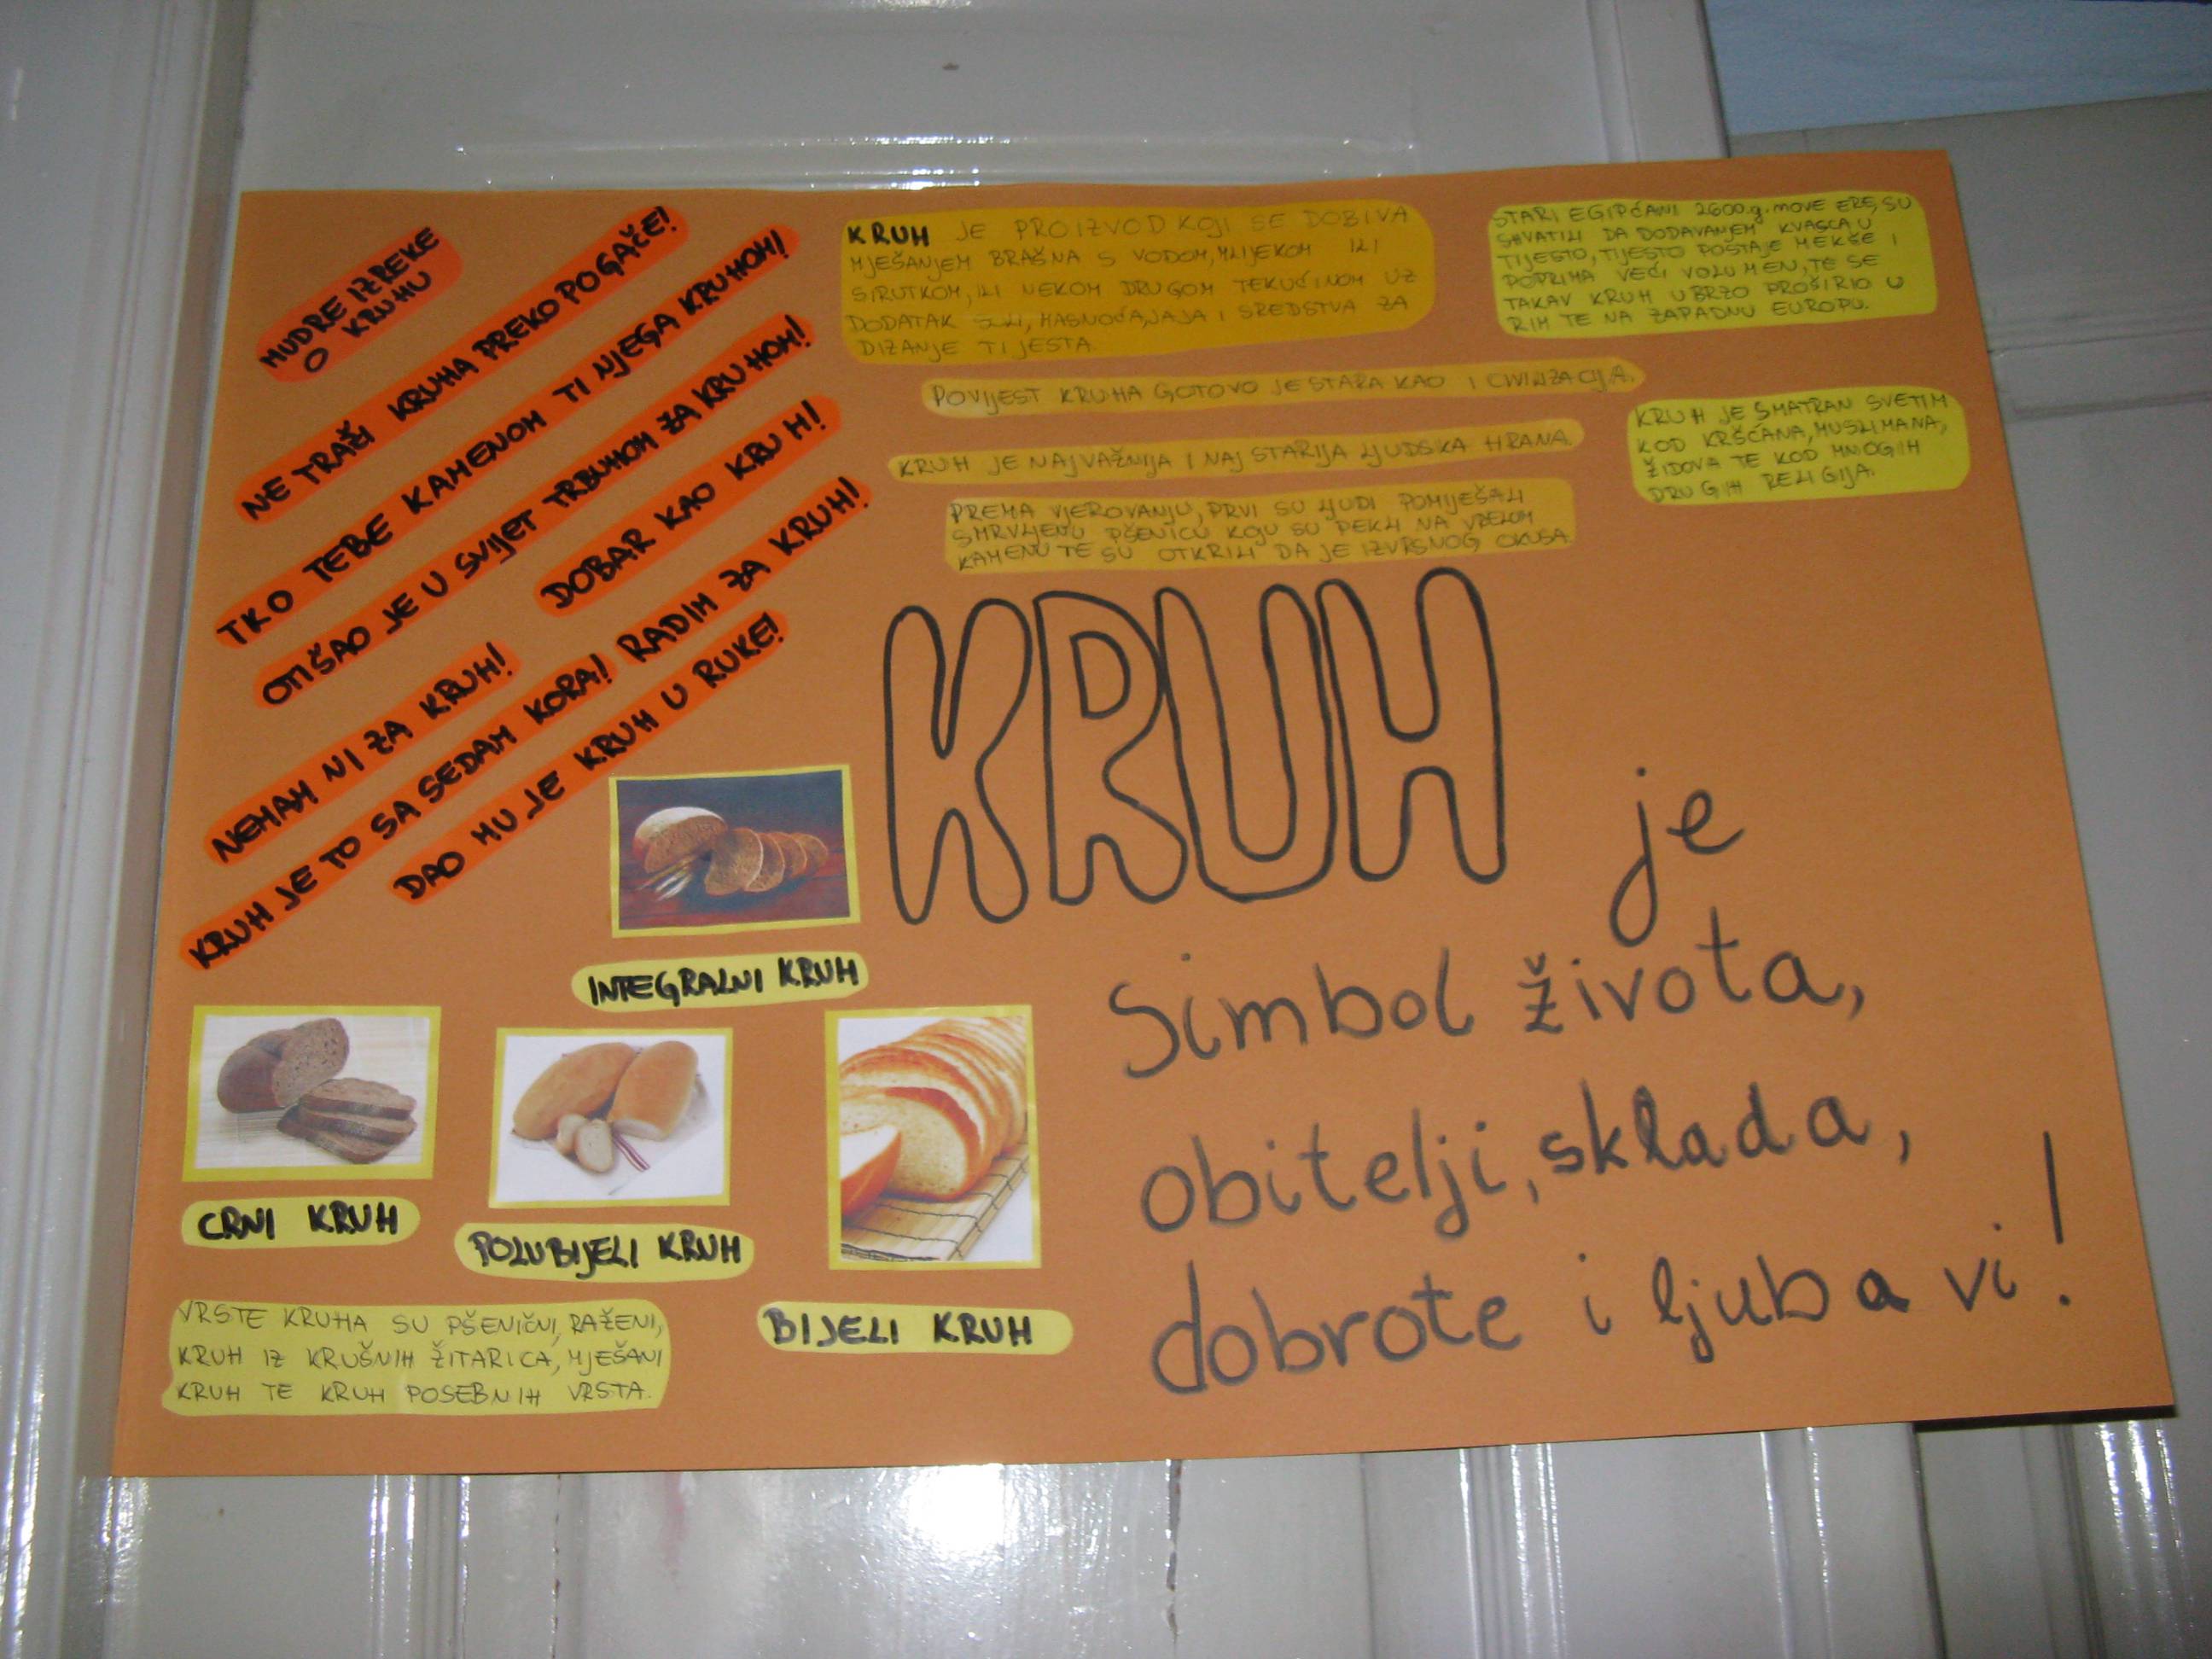 MUDRE IZREKE
O KRUHU
NE TRAŽI KRUHA PREKO POGAČE!
TKO TEBE KAMENOM TI NJEGA KRUHOM!
OTIŠAO JE U SVIJET TRBUHOM ZA KRUHOM!
DOBAR KAO KRUH!
NEMAM NI ZA KRUH!
RADIM ZA KRUH!
KRUH JE TO SA SEDAM KORA!
DAO MU JE KRUH U RUKE!
KRUH JE PROIZVOD KOJI SE DOBIVA
MJEŠANJEM BRAŠNA S VODOM, MLIJEKOM ILI
SIRUTKOM, ILI NEKOM DRUGOM TEKUĆINOM UZ
DODATAK SOLI, MASNOĆA, JAJA I SREDSTVA ZA
DIZANJE TIJESTA.
POVIJEST KRUHA GOTOVO JE STARA KAO I CIVILIZACIJA.
KRUH JE NAJVAŽNIJA I NAJSTARIJA LJUDSKA HRANA.
PREMA VJEROVANJU, PRVI SU LJUDI POMIJEŠALI
SMRVLJENU PŠENICU KOJU SU PEKLI NA VRELOM
KAMENU TE SU OTKRILI DA JE IZVRSNOG OKUSA.
STARI EGIPĆANI 2600.g. nove ERE, SU
SHVATILI DA DODAVANJEM KVASCA U
TIJESTO, TIJESTO POSTAJE MEKŠE I
POPRIMA VEĆI VOLUMEN, TE SE
TAKAV KRUH UBRZO PROŠIRIO U
RIM TE NA ZAPADNU EUROPU.
KRUH JE SMATRAN SVETIM
KOD KRŠĆANA, MUSLIMANA,
ŽIDOVA TE KOD MNOGIH
DRUGIH RELIGIJA.
KRUH je
Simbol života,
obitelji, sklada,
dobrote i ljubavi!
INTEGRALNI KRUH
CRNI KRUH
POLUBIJELI KRUH
BIJELI KRUH
VRSTE KRUHA SU PŠENIČNI, RAŽENI,
KRUH IZ KRUŠNIH ŽITARICA, MJEŠANI
KRUH TE KRUH POSEBNIH VRSTA.